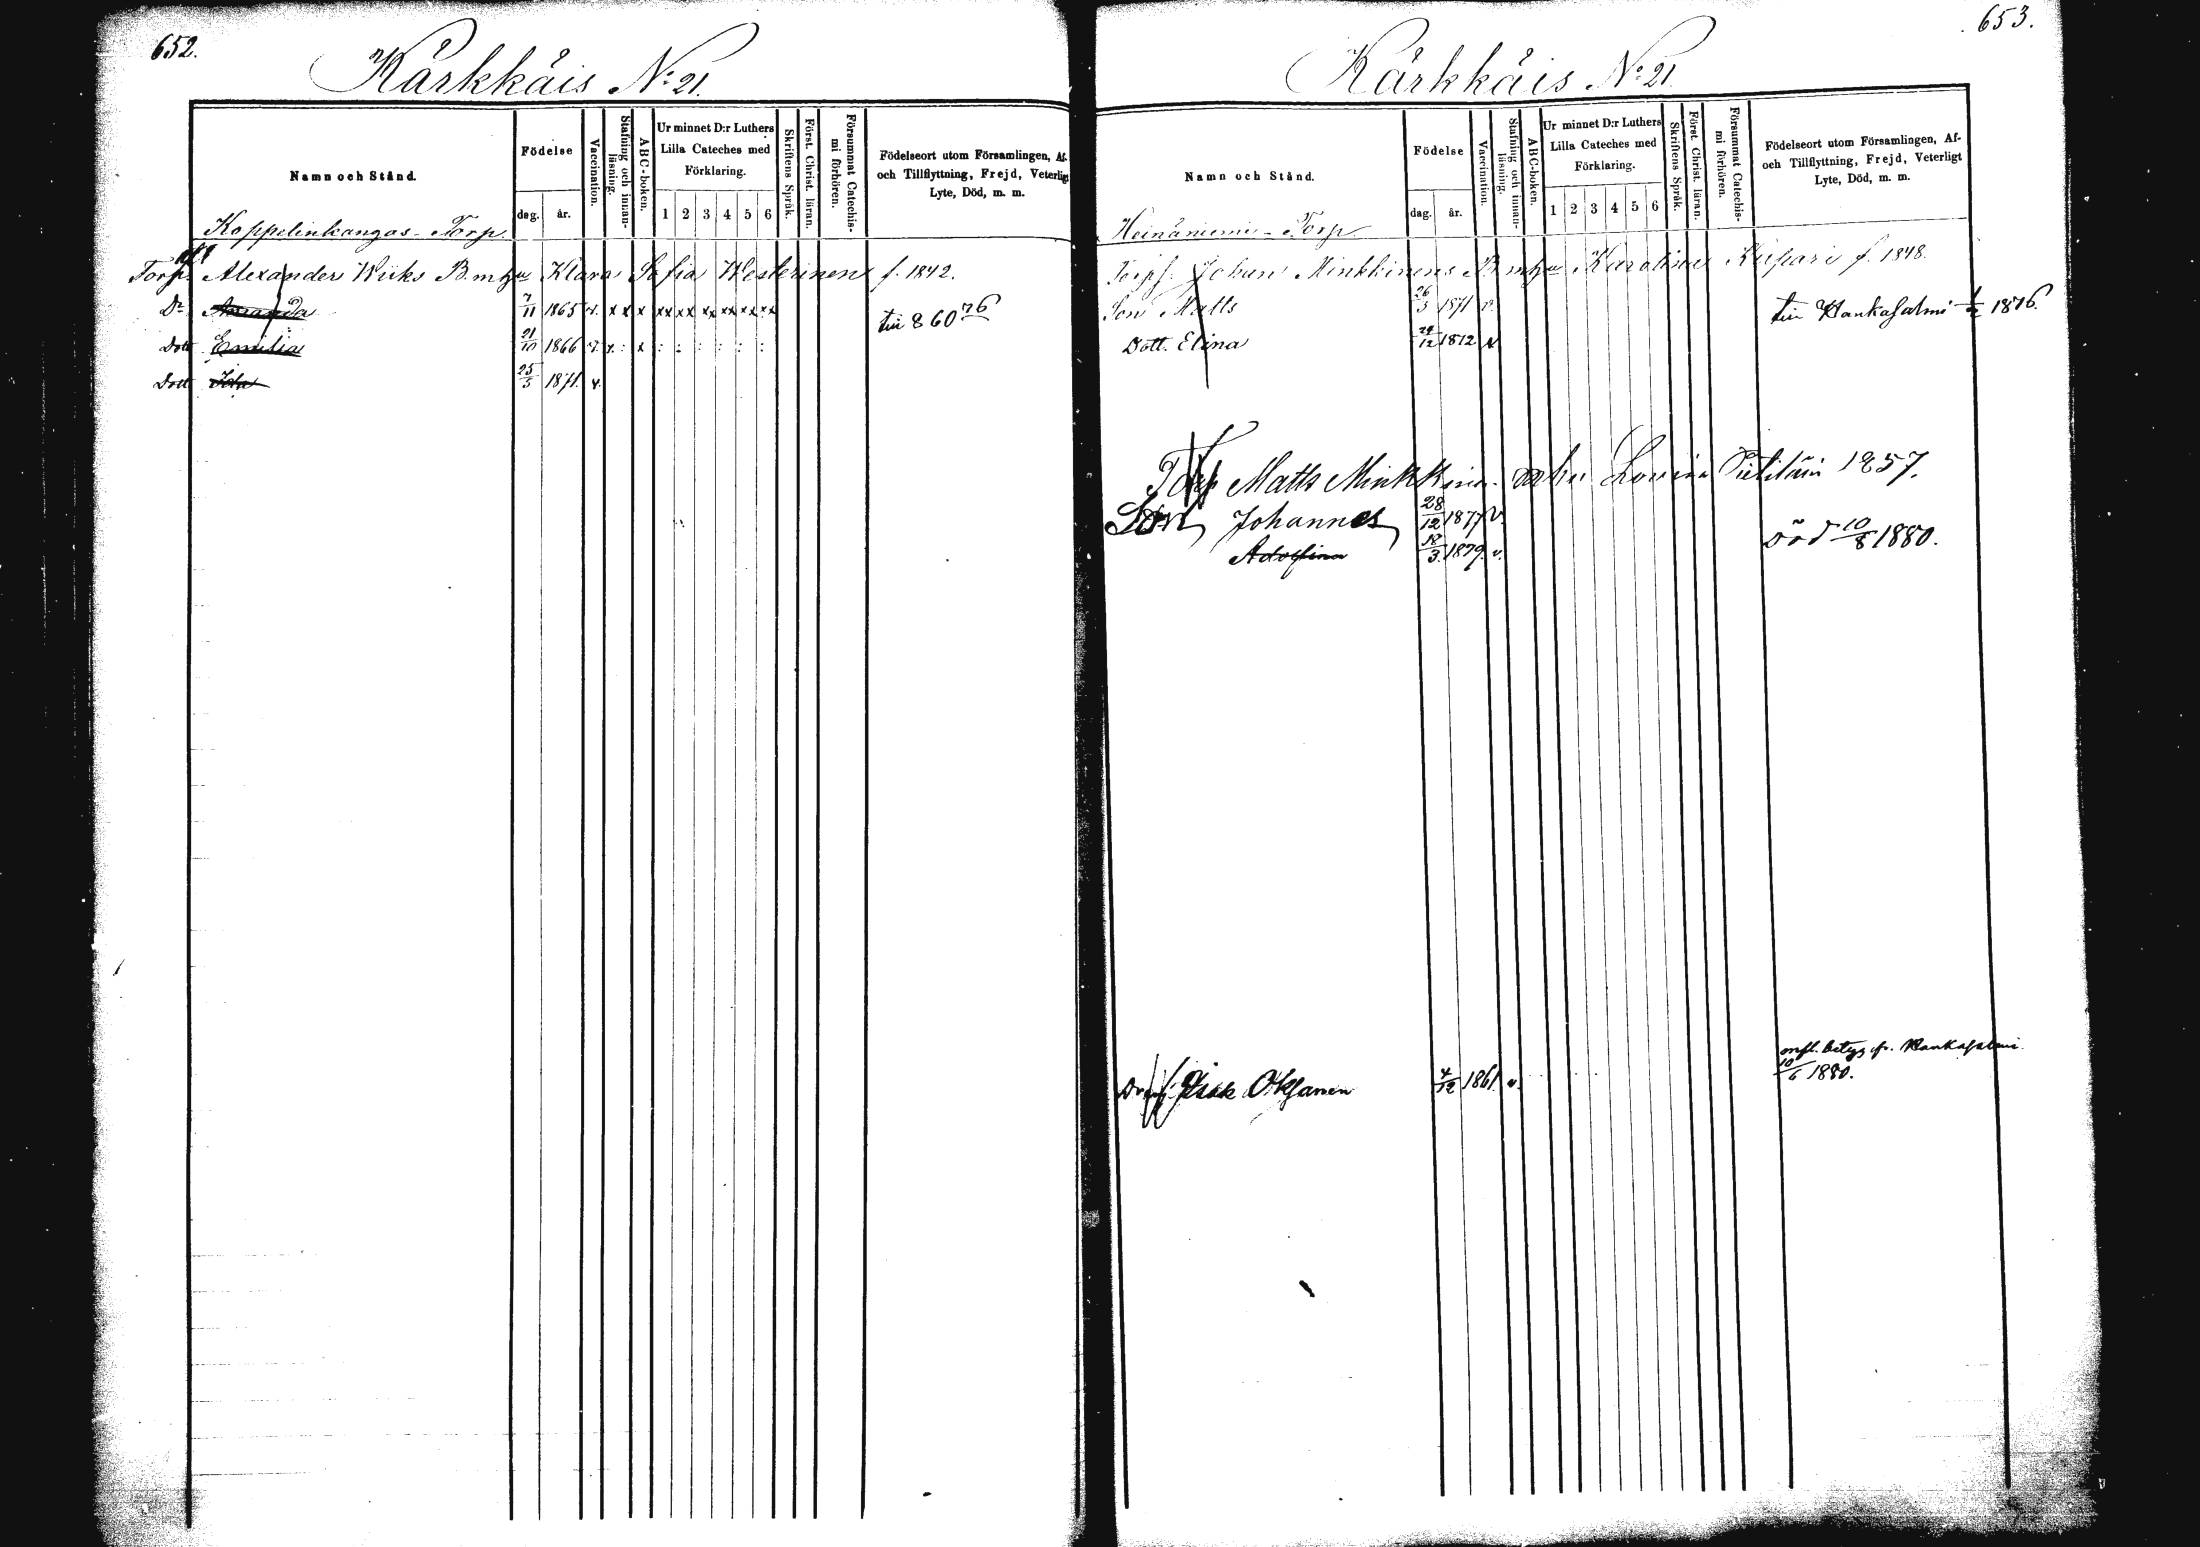 652.
Kärkkäis No: 21.
Namn och Stånd.
Födelse
dag. år.
Vaccination.
Stafning och innan-läsning.
ABC-boken.
Ur minnet D:r Luthers
Lilla Cateches med
Förklaring.
1 2 3 4 5 6
Skriftens Språk.
Först. Christ. läran.
Försummat Catechis-mi förhören.
Födelseort utom Församlingen, Af-
och Tillflyttning, Frejd, Veterligt
Lyte, Död, m. m.
Koppelinkangas - Torp.
Torp. Alexander Wiiks B. m. hu Klara Sofia Westerinen f. 1842.
Dr Amanda 7/11 1865 v. x x x xx xx xx xx xx xx till 860 76
Dott Emilia 21/10 1866 v. x : x : : : : : :
Dott Ida 25/5 1871. v.
653.
Kärkkäis No: 21.
Namn och Stånd.
Födelse
dag. år.
Vaccination.
Stafning och innan-läsning.
ABC-boken.
Ur minnet D:r Luthers
Lilla Cateches med
Förklaring.
1 2 3 4 5 6
Skriftens Språk.
Först. Christ. läran.
Försummat Catechis-mi förhören.
Födelseort utom Församlingen, Af-
och Tillflyttning, Frejd, Veterligt
Lyte, Död, m. m.
Heinäniemi - Torp
Torpf. Johan Minkkinens B. m. hu Karolina Kupari f. 1848.
Son Matts 26/3 1871 v. till Hankasalmi 1876.
Dott. Elina 24/12 1872 v.
Torp Matts Minkkinen hu Lovisa 1857.
Son Johannes 28/12 1877 v.
Adolfina 18/3 1879. v. död 10/8 1880.
Isak Oksanen 4/12 1861. v. betyg fr. Hankasalmi
10/6 1880.